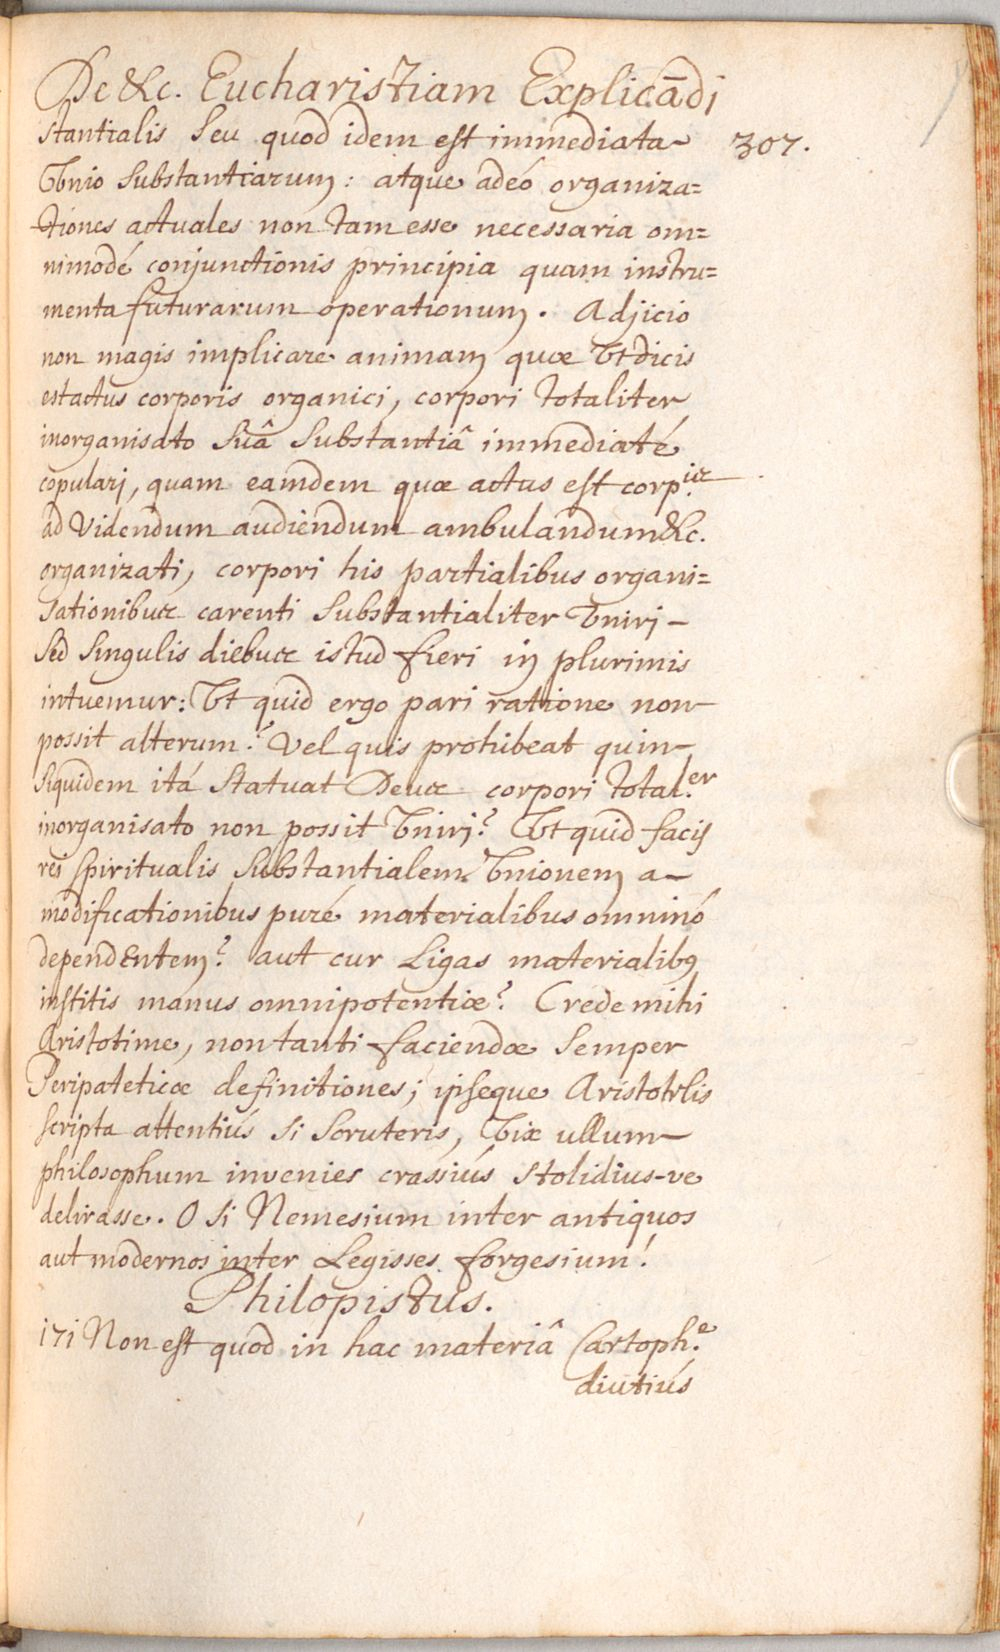 De &c. Eucharistiam Explicādi
stantialis seu quod idem est immediata 307.
Vnio substantiarum: atque adeó organiza=
tiones actuales non tam esse necessaria om=
nimodé conjunctionis principia quam instru=
menta futurarum operationum. Adjicio
non magis implicare animam quæ Vt dicis
est actus corporis organici, corpori totaliter
inorganisato suâ substantiâ immediaté
copulari, quam eamdem quæ actus est corp.is
ad Videndum audiendum ambulandum &c.
organizati, corpori his partialibus organi=
sationibus carenti substantialiter Vniri -
sed singulis diebus istud fieri in plurimis
intuemur: Vt quid ergo pari ratione non
possit alterum? Vel quis prohibeat quin
siquidem itá statuat Deus corpori total.er
inorganisato non possit Vniri? Vt quid facis
rei spiritualis substantialem Vnionem a-
modificationibus puré materialibus omninó
dependentem? aut cur Ligas materialibꝰ
institis manus omnipotentiæ? Crede mihi
Aristotime, non tanti faciendæ semper
Peripateticæ definitiones; ipseque Aristotelis
scripta attentiús si scruteris, Vix ullum
philosophum invenies crassiús stolidius-ve
delirasse. O si Nemesium inter antiquos
aut modernos inter Legisses forgesium!
Philopistus.
171 Non est quod in hac materiâ Cartoph.e
diutiús